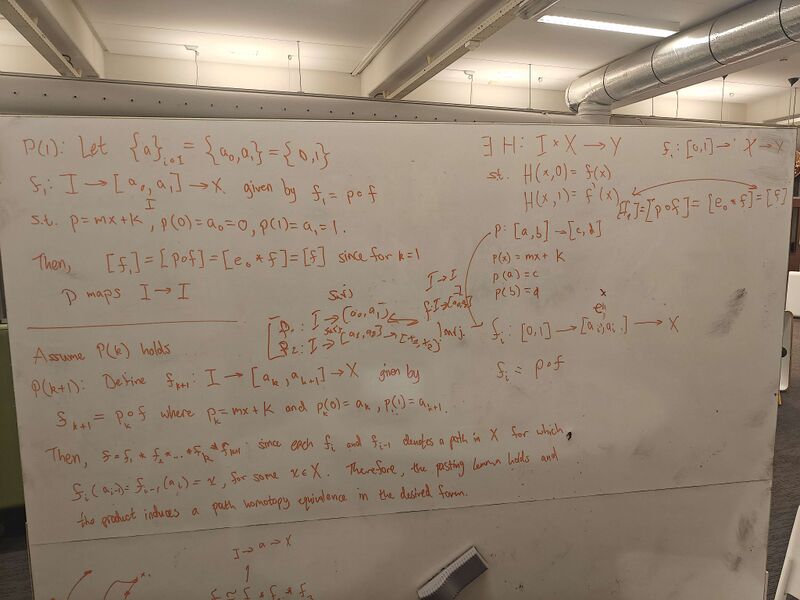 P(1): Let {a}_{i∈I} = {a₀,a₁} = {0,1}
f₁: I → [a₀, a₁] → X given by f₁ = p∘f
I
s.t. p=mx+k, p(0)=a₀=0, p(1)=a₁=1.
Then, [f₁]=[p∘f]=[e₀*f]=[f] since for k=1
p maps I→I
Assume P(k) holds
P(k+1): Define f_{k+1}: I → [a_k, a_{k+1}] → X given by
f_{k+1} = p_k∘f where p_k=mx+k and p_k(0)=a_k, p_k(1)=a_{k+1}.
Then, f=f₁ * f₂ * ... * f_k * f_{k+1} since each f_i and f_{i-1} denotes a path in X for which
f_i(a_{i-1})=f_{i-1}(a_i)=x, for some x∈X. Therefore, the pasting lemma holds and
the product induces a path homotopy equivalence in the desired form.
∃ H: I×X → Y
s.t. H(x,0)=f(x)
H(x,1)=f'(x)
f_i: [0,1] → X → Y
[f₁]=[p∘f]=[e₀*f]=[f]
p: [a,b]→[c,d]
p(x)=mx+k
p(a)=c
p(b)=d
I→I
surj
P₁: I→[a₀,a₁]
surj.
f_i: [0,1] → [a_i,a_i ] → X
f_i = p∘f
I→a→X